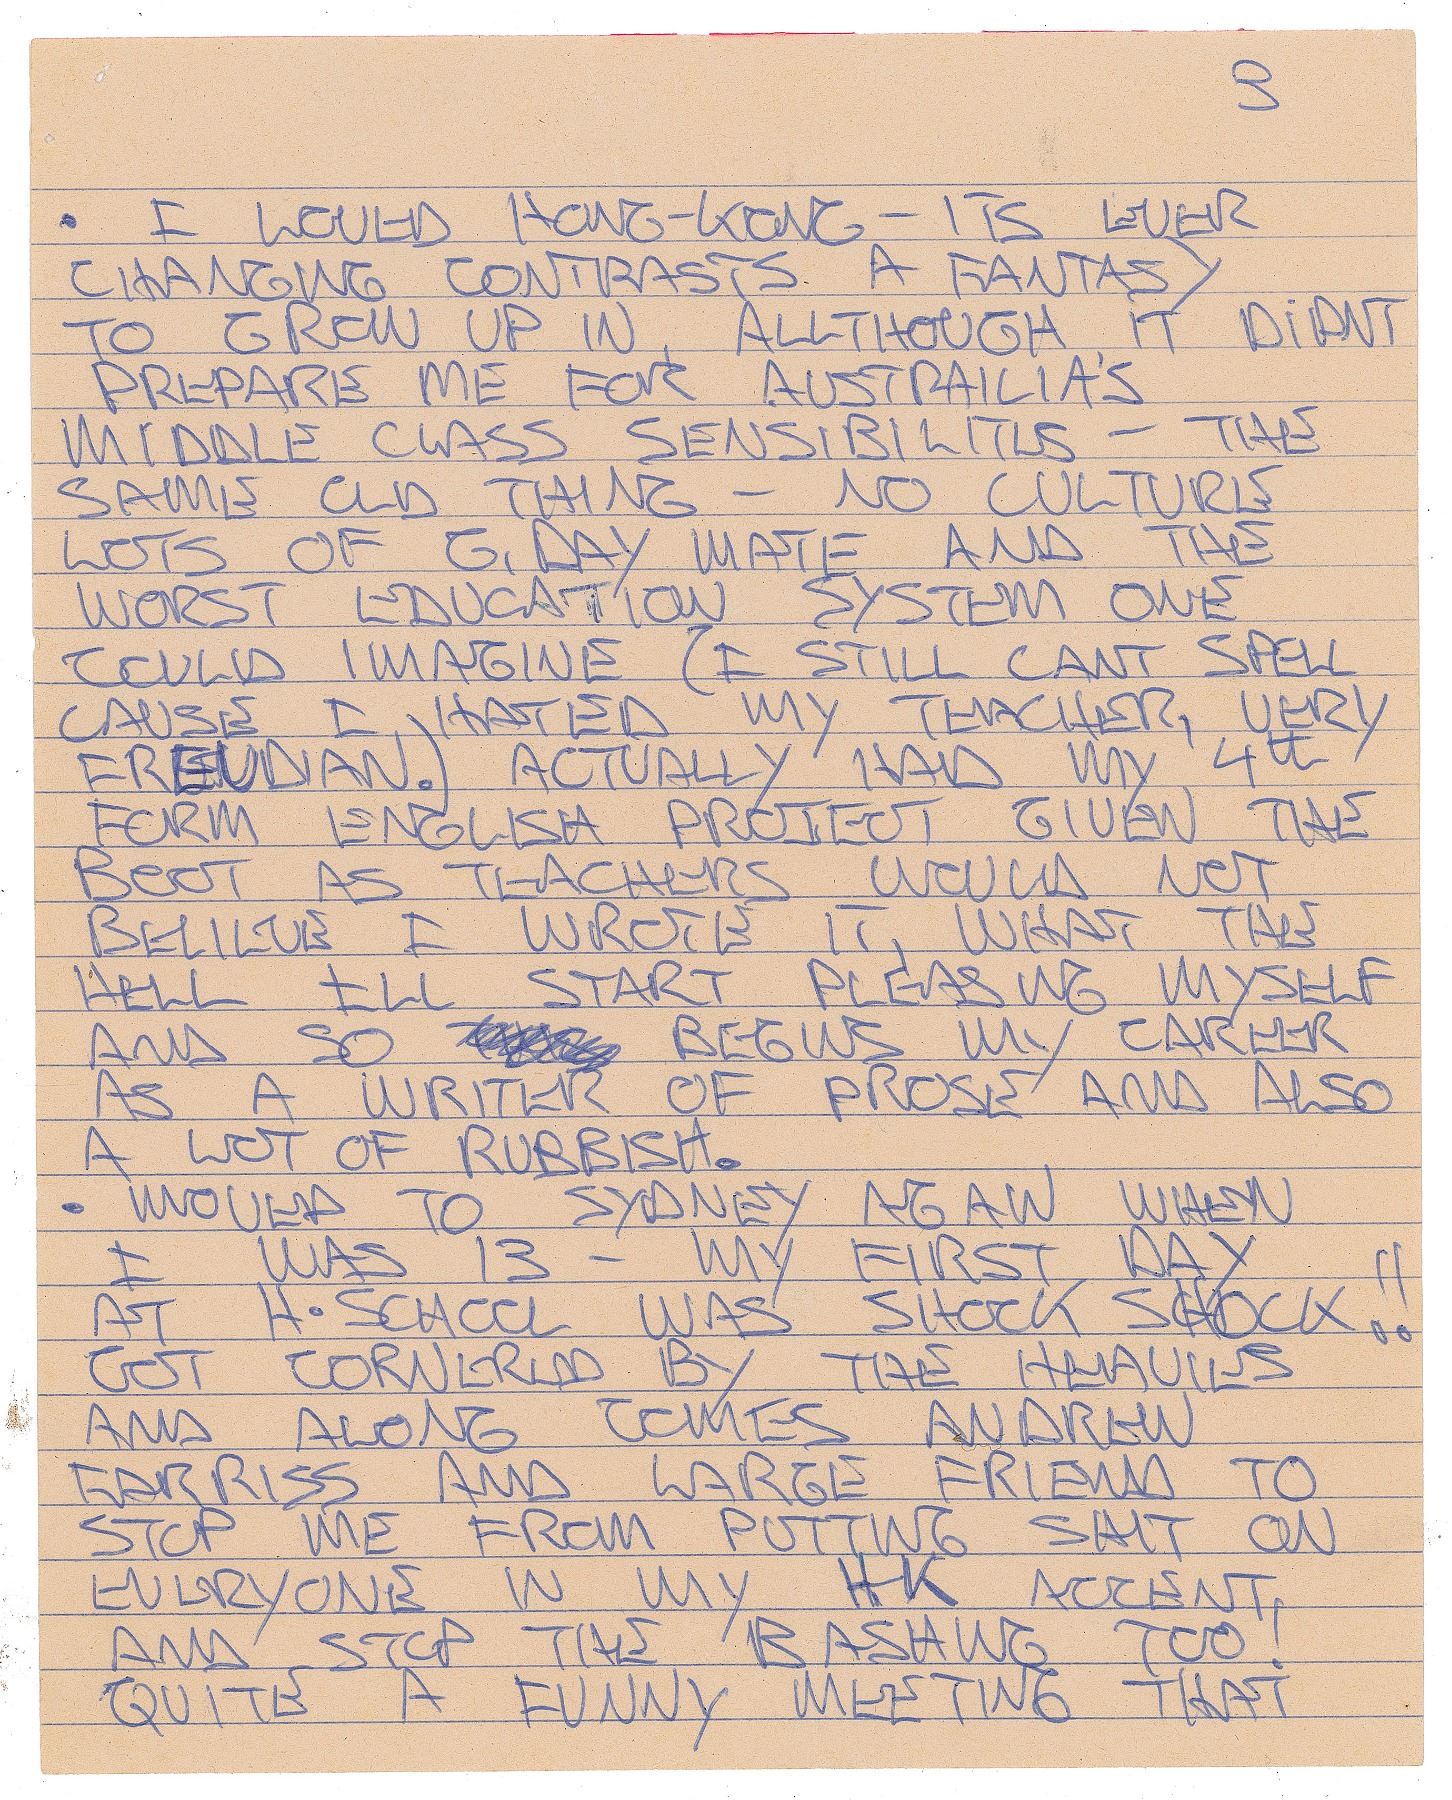 3
• I LOVED HONG-KONG - ITS EVER
CHANGING CONTRASTS A FANTASY
TO GROW UP IN, ALLTHOUGH IT DIDNT
PREPARE ME FOR AUSTRAILIA'S
MIDDLE CLASS SENSIBILITIES - THE
SAME OLD THING - NO CULTURE
LOTS OF G,DAY MATE AND THE
WORST EDUCATION SYSTEM ONE
COULD IMAGINE (I STILL CANT SPELL
CAUSE I HATED MY TEACHER, VERY
FREUDIAN.) ACTUALLY HAD MY 4th
FORM ENGLISH PROJECT GIVEN THE
BOOT AS TEACHERS WOULD NOT
BELIEVE I WROTE IT, WHAT THE
HELL ILL START PLEASING MYSELF
AND SO BEGINS MY CAREER
AS A WRITER OF PROSE AND ALSO
A LOT OF RUBBISH.
• MOVED TO SYDNEY AGAIN WHEN
I WAS 13 - MY FIRST DAY
AT H.SCHOOL WAS SHOCK SCHOCK!!
GOT CORNERED BY THE HEAVIES
AND ALONG COMES ANDREW
FARRISS AND LARGE FRIEND TO
STOP ME FROM PUTTING SHIT ON
EVERYONE IN MY HK ACCENT,
AND STOP THE BASHING TOO!
QUITE A FUNNY MEETING THAT